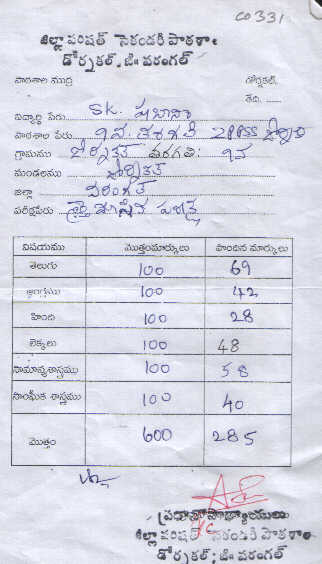 CO331
జిల్లా పరిషత్ సెకండరి పాఠశాల
డోర్నకల్, జి॥ వరంగల్
పాఠశాల ముద్ర డోర్నకల్,
తేది. ......
విద్యార్థి పేరు Sk. షబానా
పాఠశాల పేరు 9వ తరగతి ZPPSS డోర్నకల్
గ్రామము డోర్నకల్ తరగతి: 9వ
మండలము డోర్నకల్
జిల్లా వరంగల్
పరీక్షపేరు
విషయము మొత్తంమార్కులు పొందిన మార్కులు
తెలుగు 100 69
ఆంగ్లము 100 42
హింది 100 28
లెక్కలు 100 48
సామాన్యశాస్త్రము 100 58
సాంఘీక శాస్త్రము 100 40
మొత్తం 600 285
ప్రధానోపాధ్యాయులు
జిల్లా పరిషత్ సెకండరి పాఠశాల
డోర్నకల్; జి॥ వరంగల్